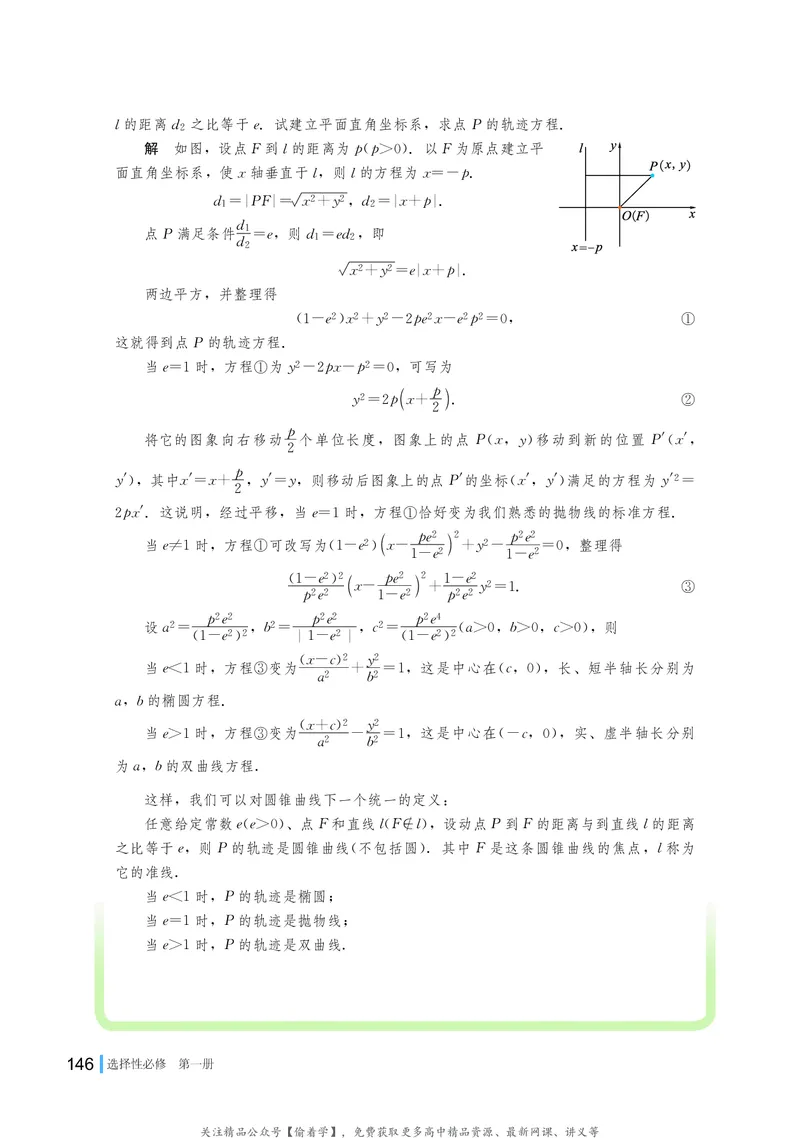 l的距离 d₂ 之比等于 e. 试建立平面直角坐标系，求点 P 的轨迹方程.
解 如图，设点 F 到 l 的距离为 p(p>0). 以 F 为原点建立平
面直角坐标系，使 x 轴垂直于 l，则 l 的方程为 x=-p.
d₁=|PF|=√(x²+y²)，d₂=|x+p|.
点 P 满足条件 d₁/d₂=e，则 d₁=ed₂，即
√(x²+y²)=e|x+p|.
l
y
P(x, y)
O(F)
x
x=-p
两边平方，并整理得
(1-e²)x²+y²-2pe²x-e²p²=0， ①
这就得到点 P 的轨迹方程.
当 e=1 时，方程①为 y²-2px-p²=0，可写为
y²=2p(x+p/2). ②
将它的图象向右移动 p/2 个单位长度，图象上的点 P(x，y)移动到新的位置 P′(x′，
y′)，其中x′=x+p/2，y′=y，则移动后图象上的点 P′的坐标(x′，y′)满足的方程为 y′²=
2px′. 这说明，经过平移，当 e=1 时，方程①恰好变为我们熟悉的抛物线的标准方程.
当 e≠1 时，方程①可改写为(1-e²)(x-pe²/(1-e²))²+y²-p²e²/(1-e²)=0，整理得
(1-e²)²/(p²e²)(x-pe²/(1-e²))²+(1-e²)/(p²e²)y²=1. ③
设 a²=p²e²/(1-e²)²，b²=p²e²/|1-e²|，c²=p²e⁴/(1-e²)²(a>0，b>0，c>0)，则
当 e<1 时，方程③变为(x-c)²/a²+y²/b²=1，这是中心在(c，0)，长、短半轴长分别为
a，b 的椭圆方程.
当 e>1 时，方程③变为(x+c)²/a²-y²/b²=1，这是中心在(-c，0)，实、虚半轴长分别
为 a，b 的双曲线方程.
这样，我们可以对圆锥曲线下一个统一的定义：
任意给定常数 e(e>0)、点 F 和直线 l(F∉l)，设动点 P 到 F 的距离与到直线 l 的距离
之比等于 e，则 P 的轨迹是圆锥曲线(不包括圆). 其中 F 是这条圆锥曲线的焦点，l 称为
它的准线.
当 e<1 时，P 的轨迹是椭圆；
当 e=1 时，P 的轨迹是抛物线；
当 e>1 时，P 的轨迹是双曲线.
146 选择性必修 第一册
关注精品公众号【偷着学】，免费获取更多高中精品资源、最新网课、讲义等